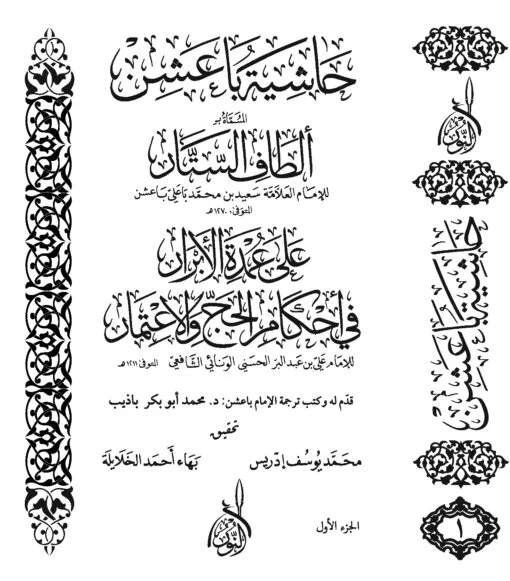 حاشية باعشن
المسماة بـ
ألطاف الستّار
للإمام العلامة سعيد بن محمد باعلي باعشن
المتوفى ١٢٧٠هـ
على عمدة الأبرار
في أحكام الحجّ والاعتمار
للإمام علي بن عبد البرّ الحسني الونائي الشافعي المتوفى ١٢١١هـ
قدّم له وكتب ترجمة الإمام باعشن: د. محمد أبو بكر باذيب
تحقيق
محمّد يوسف إدريس بهاء أحمد الخلايلة
الجزء الأول
النور
النور
حاشية باعشن
١